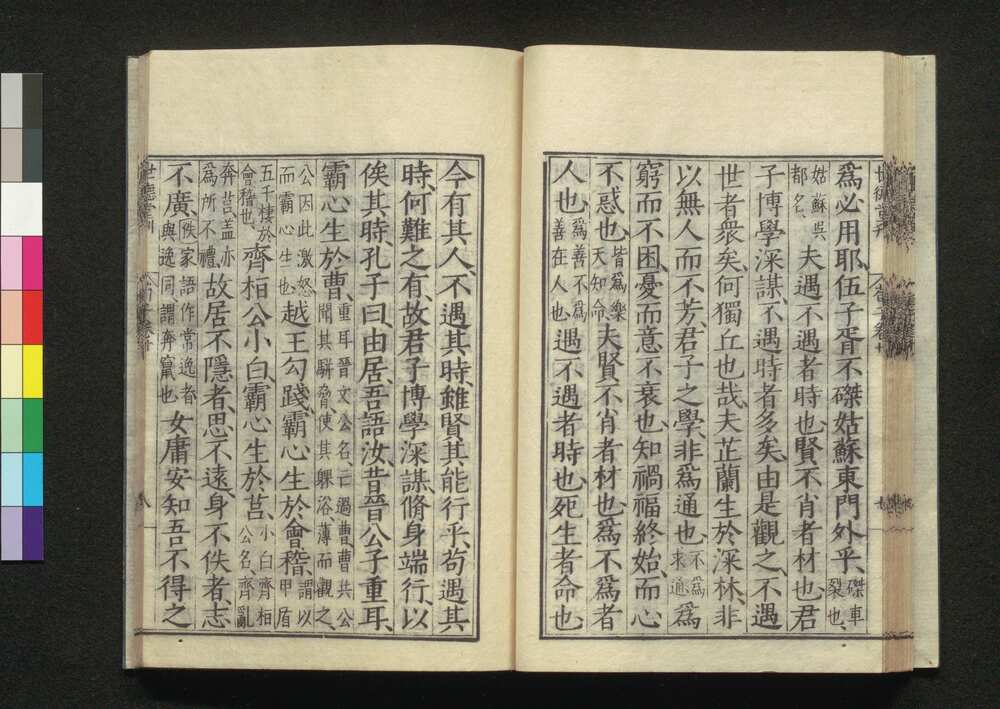 爲必用耶、伍子胥不磔姑蘇東門外乎、磔車裂也、
姑蘇吳都名、夫遇不遇者時也、賢不肖者材也、君
子博學深謀、不遇時者多矣、由是觀之、不遇
世者衆矣、何獨丘也哉、夫芷蘭生於深林、非
以無人而不芳、君子之學、非爲通也、不爲來通爲
窮而不困、憂而意不衰也、知禍福終始、而心
不惑也、皆爲樂天知命、夫賢不肖者材也、爲不爲者
人也、爲善不爲善在人也、遇不遇者時也、死生者命也、
今有其人、不遇其時、雖賢其能行乎、苟遇其
時、何難之有、故君子博學深謀脩身端行、以
俟其時、孔子曰、由居、吾語汝、昔晉公子重耳、
霸心生於曹、重耳晉文公名、亡過曹、曹共公聞其駢脅、使其躶浴薄而觀之、
公因此激怒而霸心生也、越王勾踐、霸心生於會稽、謂以甲盾
五千棲於會稽也、齊桓公小白、霸心生於莒、小白齊桓公名、齊亂
奔莒、盖亦爲所不禮、故居不隱者、思不遠、身不佚者、志
不廣、佚家語作常逸者與逸同、謂奔竄也、女庸安知吾不得之